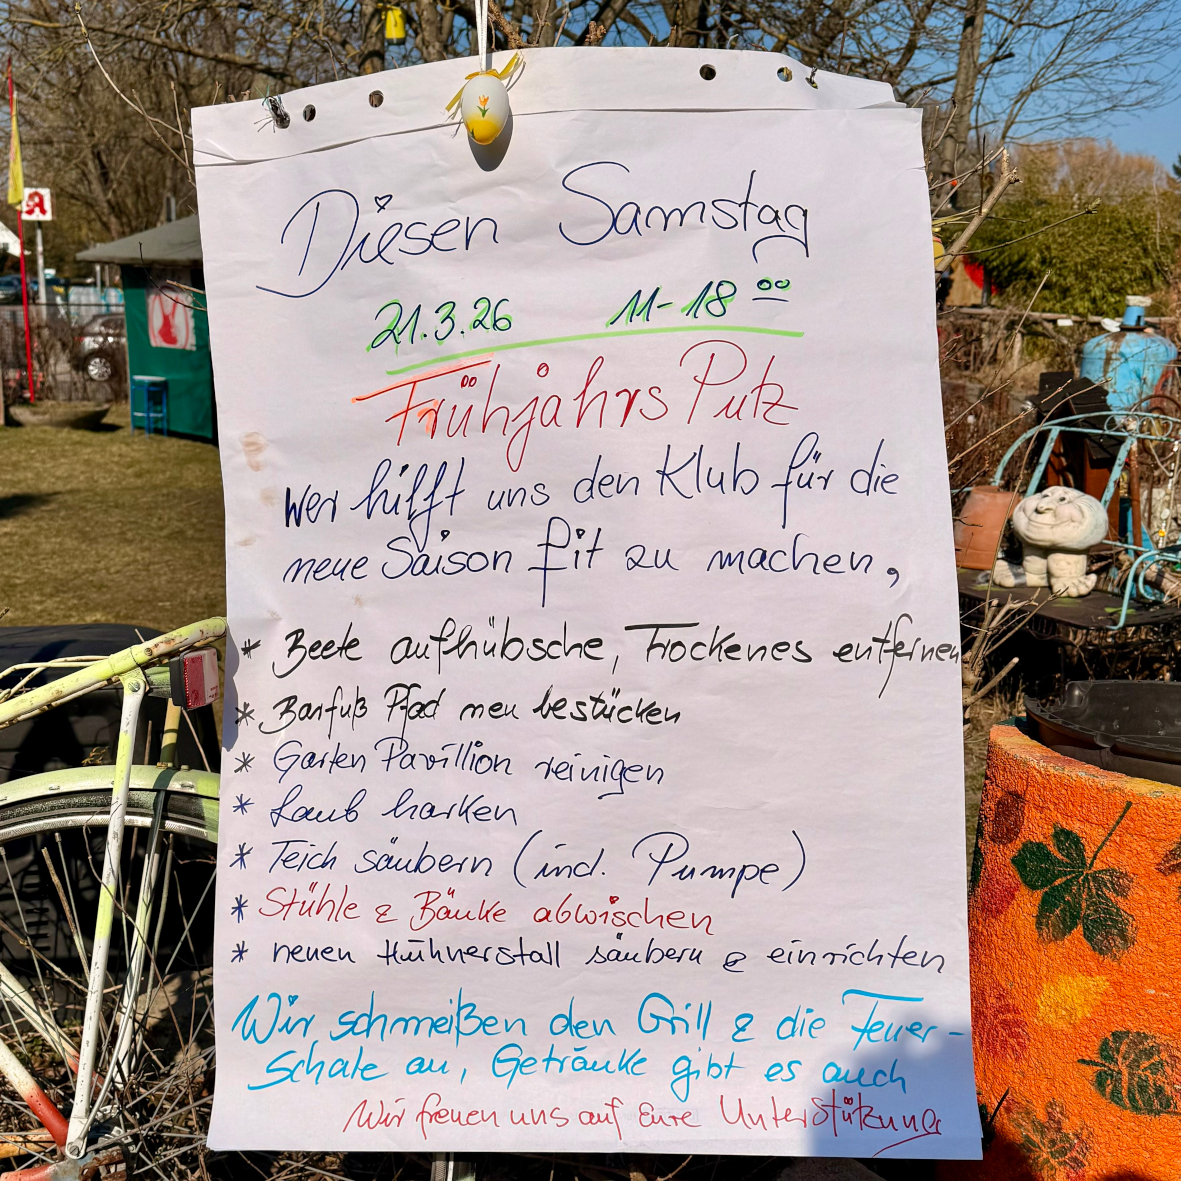 Diesen Samstag
21.3.26 11-18 00
FrühjahrsPutz
Wer hilft uns den Klub für die
neue Saison fit zu machen,
* Beete aufhübsche, Trockenes entfernen
* Barfuß Pfad neu bestücken
* Garten Pavillion reinigen
* Laub harken
* Teich säubern (incl. Pumpe)
* Stühle & Bänke abwischen
* neuen Hühnerstall säubern & einrichten
Wir schmeißen den Grill & die Feuer-
Schale an, Getränke gibt es auch
Wir freuen uns auf Eure Unterstützung